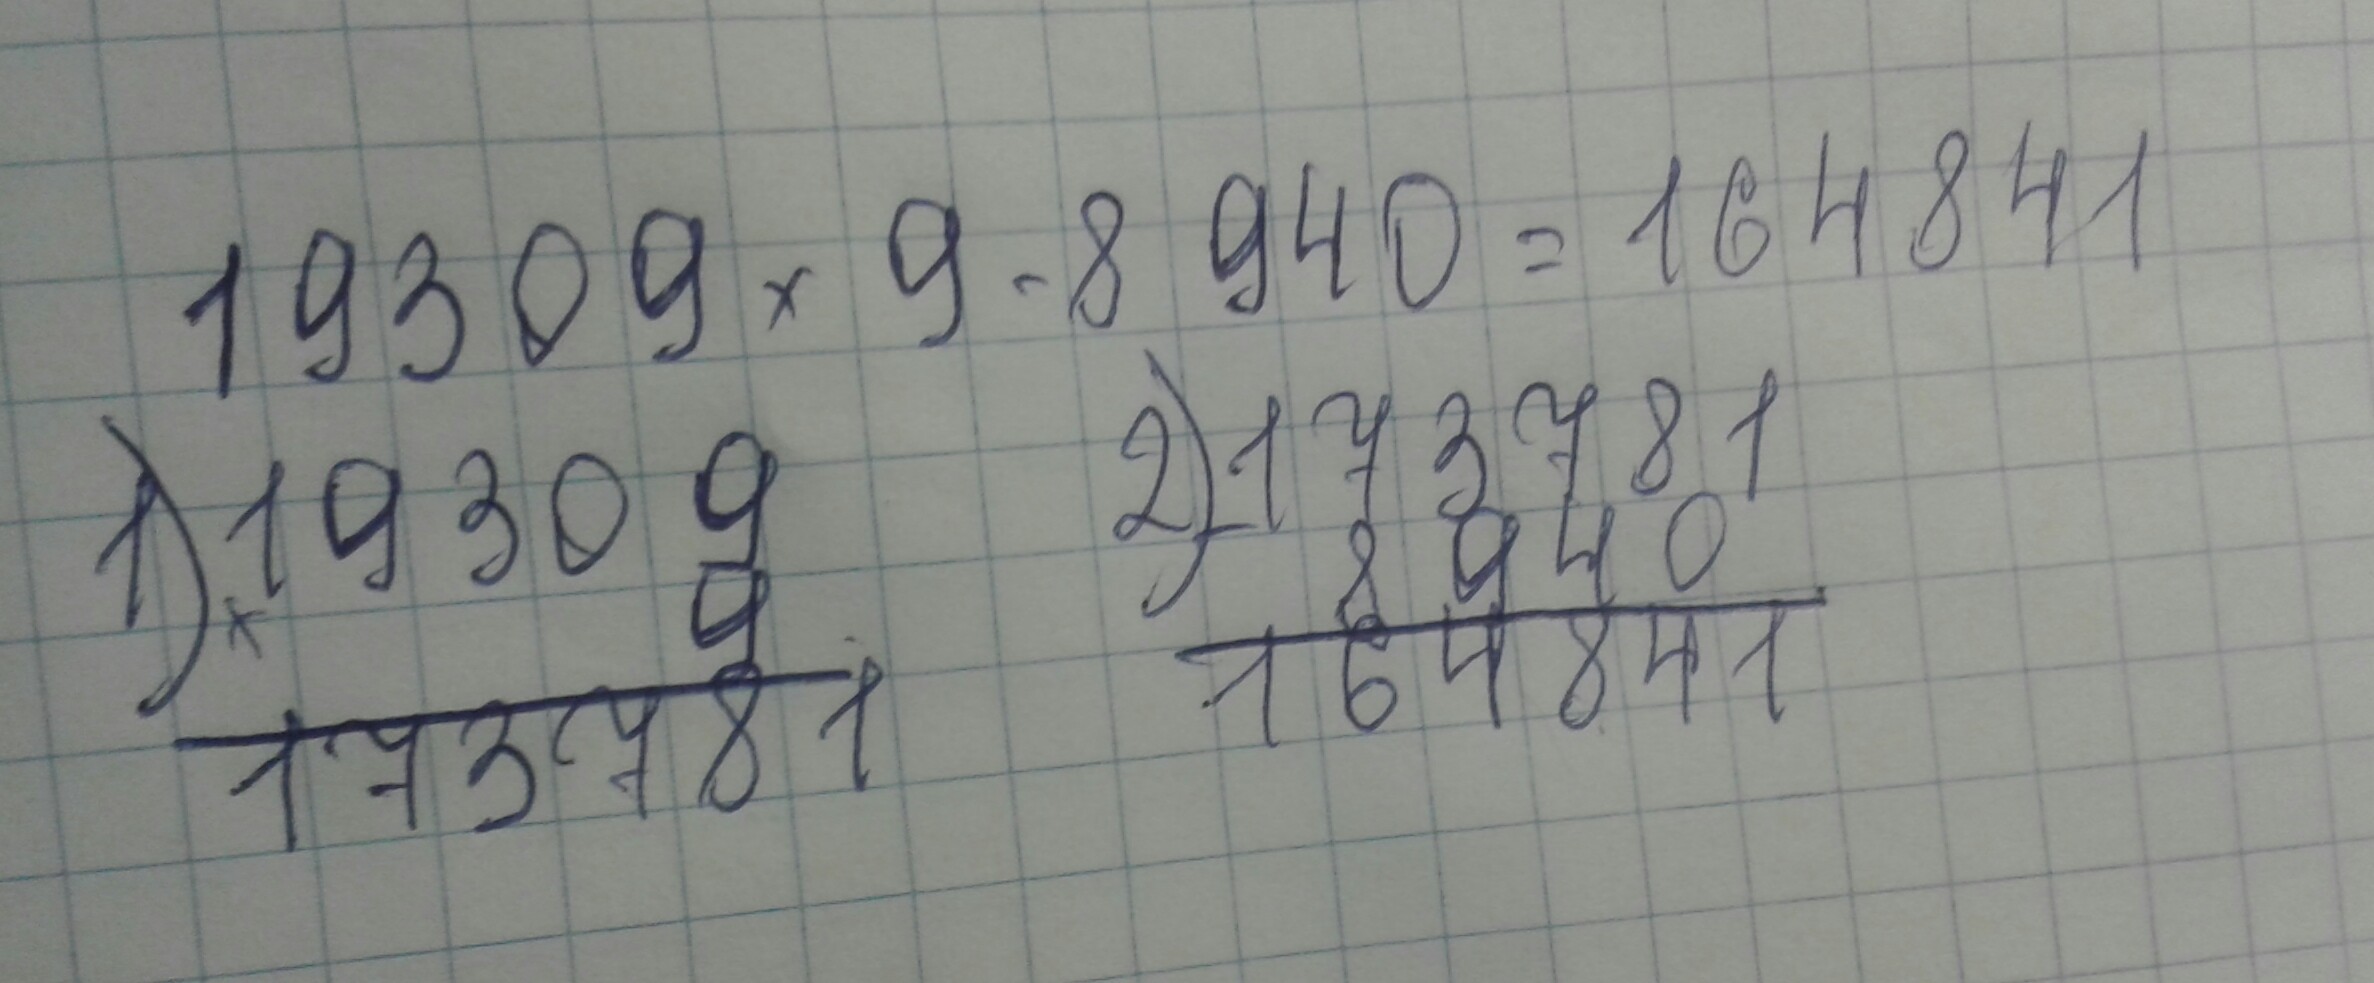 19309 × 9 - 8 940 = 164841
1) 19309
× 9
173781
2) 173781
- 8940
164841